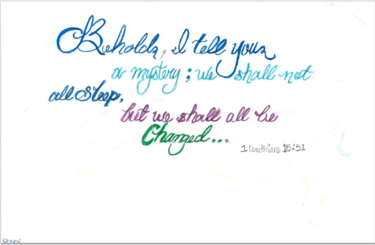 Behold, I tell you
a mystery; we shall not
all sleep,
but we shall all be
Changed...
1 Corinthians 15:51